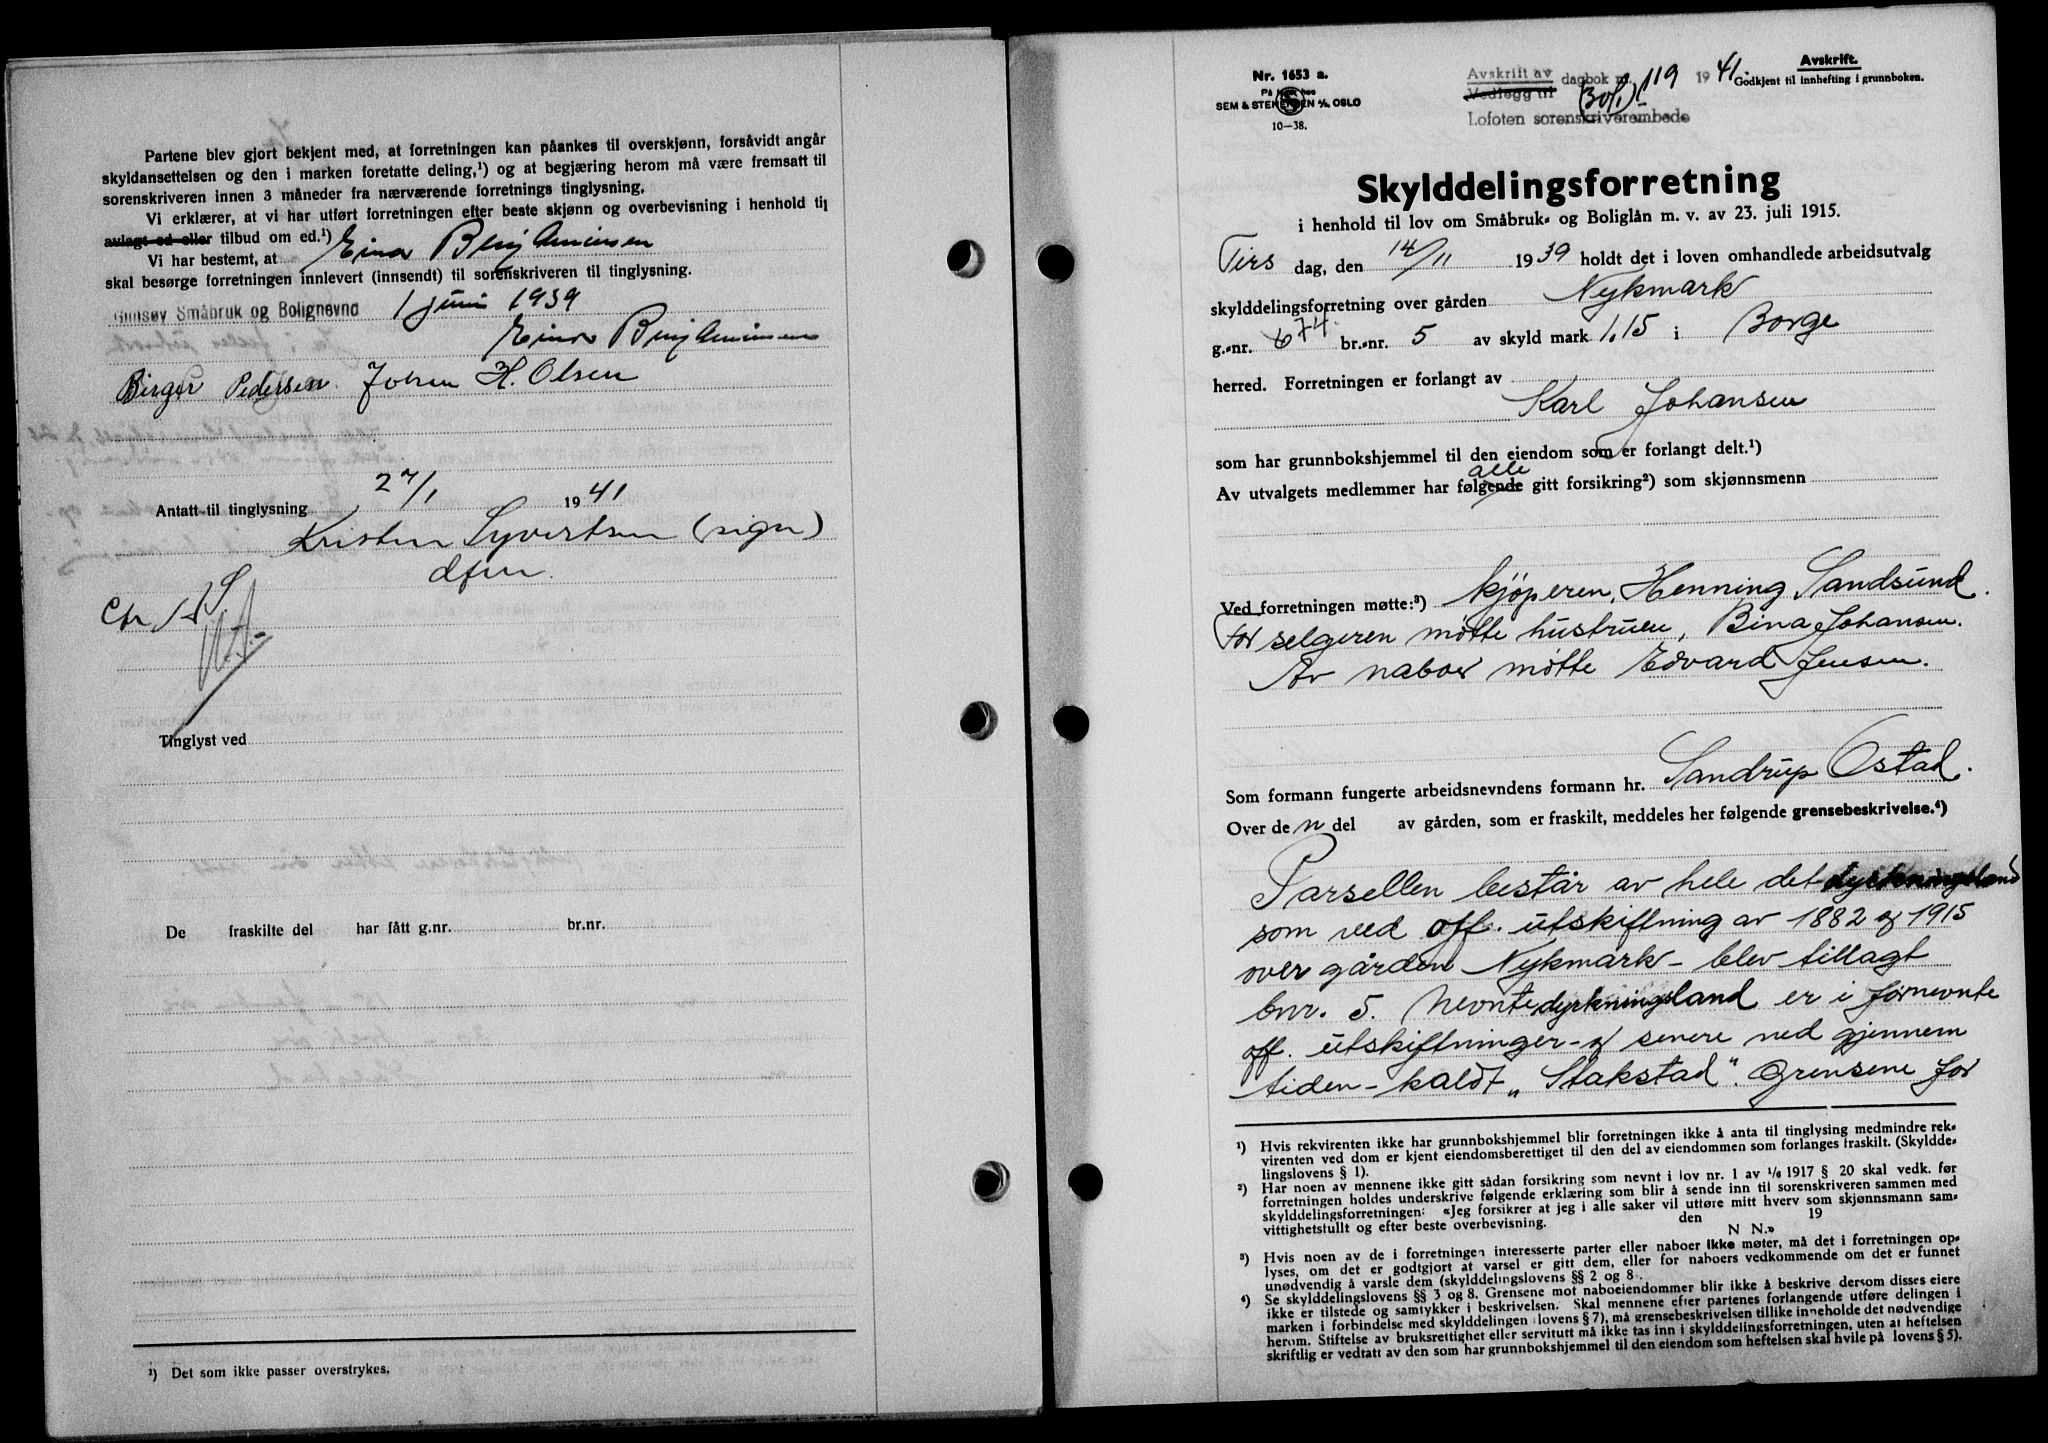 Partene blev gjort bekjent med, at forretningen kan påankes til overskjønn, forsåvidt angår
skyldansettelsen og den i marken foretatte deling,¹) og at begjæring herom må være fremsatt til
sorenskriveren innen 3 måneder fra nærværende forretnings tinglysning.
Vi erklærer, at vi har utført forretningen efter beste skjønn og overbevisning i henhold til
avlagt ed eller tilbud om ed.¹)
Vi har bestemt, at Einar Benjaminsen
skal besørge forretningen innlevert (innsendt) til sorenskriveren til tinglysning.
Gimsøy Småbruk og Bolignevnd 1 juni 1939
Einar Benjaminsen
Birger Pedersen Johan H. Olsen
Antatt til tinglysning 27/1 1941
Kristen Syvertsen (sign)
dfm.
Tinglyst ved
De fraskilte del har fått g.nr. br.nr.
¹) Det som ikke passer overstrykes.
Nr. 1653 a.
På lager hos
SEM & STENERSEN A/S, OSLO
10—38.
Avskrift av dagbok nr. 119 1941.
Vedlegg til (30/1)
Lofoten sorenskriverembede
Avskrift.
Godkjent til innhefting i grunnboken.
Skylddelingsforretning
i henhold til lov om Småbruk- og Boliglån m. v. av 23. juli 1915.
Tirs dag, den 14/11 1939 holdt det i loven omhandlede arbeidsutvalg
skylddelingsforretning over gården Nykmark
g.-nr. 74. br.-nr. 5 av skyld mark 1.15 i Borge
herred. Forretningen er forlangt av
Karl Johansen
som har grunnbokshjemmel til den eiendom som er forlangt delt.¹)
alle
Av utvalgets medlemmer har følgende gitt forsikring²) som skjønnsmenn
Ved forretningen møtte:³) kjøperen, Henning Sandsund.
For selgeren møtte hustruen, Bina Johansen.
Av naboer møtte Edvard Jensen.
Som formann fungerte arbeidsnevndens formann hr. Sandrup Ostad.
Over den del av gården, som er fraskilt, meddeles her følgende grensebeskrivelse.⁴)
Parsellen består av hele det dyrkningsland
som ved off. utskiftning av 1882 og 1915
over gården Nykmark - blev tillagt
bnr. 5. Nevnte dyrkningsland er i førnevnte
off. utskiftninger - og senere ned gjennem
tiden - kaldt „Stakstad". Grensene for
¹) Hvis rekvirenten ikke har grunnbokshjemmel blir forretningen ikke å anta til tinglysing medmindre rek-
virenten ved dom er kjent eiendomsberettiget til den del av eiendommen som forlanges fraskilt. (Skyldde-
lingslovens § 1).
²) Har noen av mennene ikke gitt sådan forsikring som nevnt i lov nr. 1 av 1/6 1917 § 20 skal vedk. før
forretningen holdes underskrive følgende erklæring som blir å sende inn til sorenskriveren sammen med
skylddelingsforretningen: «Jeg forsikrer at jeg i alle saker vil utføre mitt hverv som skjønnsmann sam-
vittighetsfullt og efter beste overbevisning. den 19
N N.»
³) Hvis noen av de i forretningen interesserte parter eller naboer ikke møter, må det i forretningen op-
lyses, om det er godtgjort at varsel er gitt dem, eller for naboers vedkommende om det er funnet
unødvendig å varsle dem (skylddelingslovens §§ 2 og 8).
⁴) Se skylddelingslovens §§ 3 og 8. Grensene mot naboeiendommer blir ikke å beskrive dersom disses eiere
ikke er tilstede og samtykker i beskrivelsen. Skal mennene efter partenes forlangende utføre delingen i
marken i forbindelse med skylddelingen (lovens § 7), må grensebeskrivelsen tillike inneholde det nødvendige
herom. Stiftelse av bruksrettighet eller servitutt må ikke tas inn i skylddelingsforretningen, uten at heftelsen
skriftlig er vedtatt av den som har grunnbokshjemmel til den eiendom som heftelsen skal hvile på (lovens § 5).